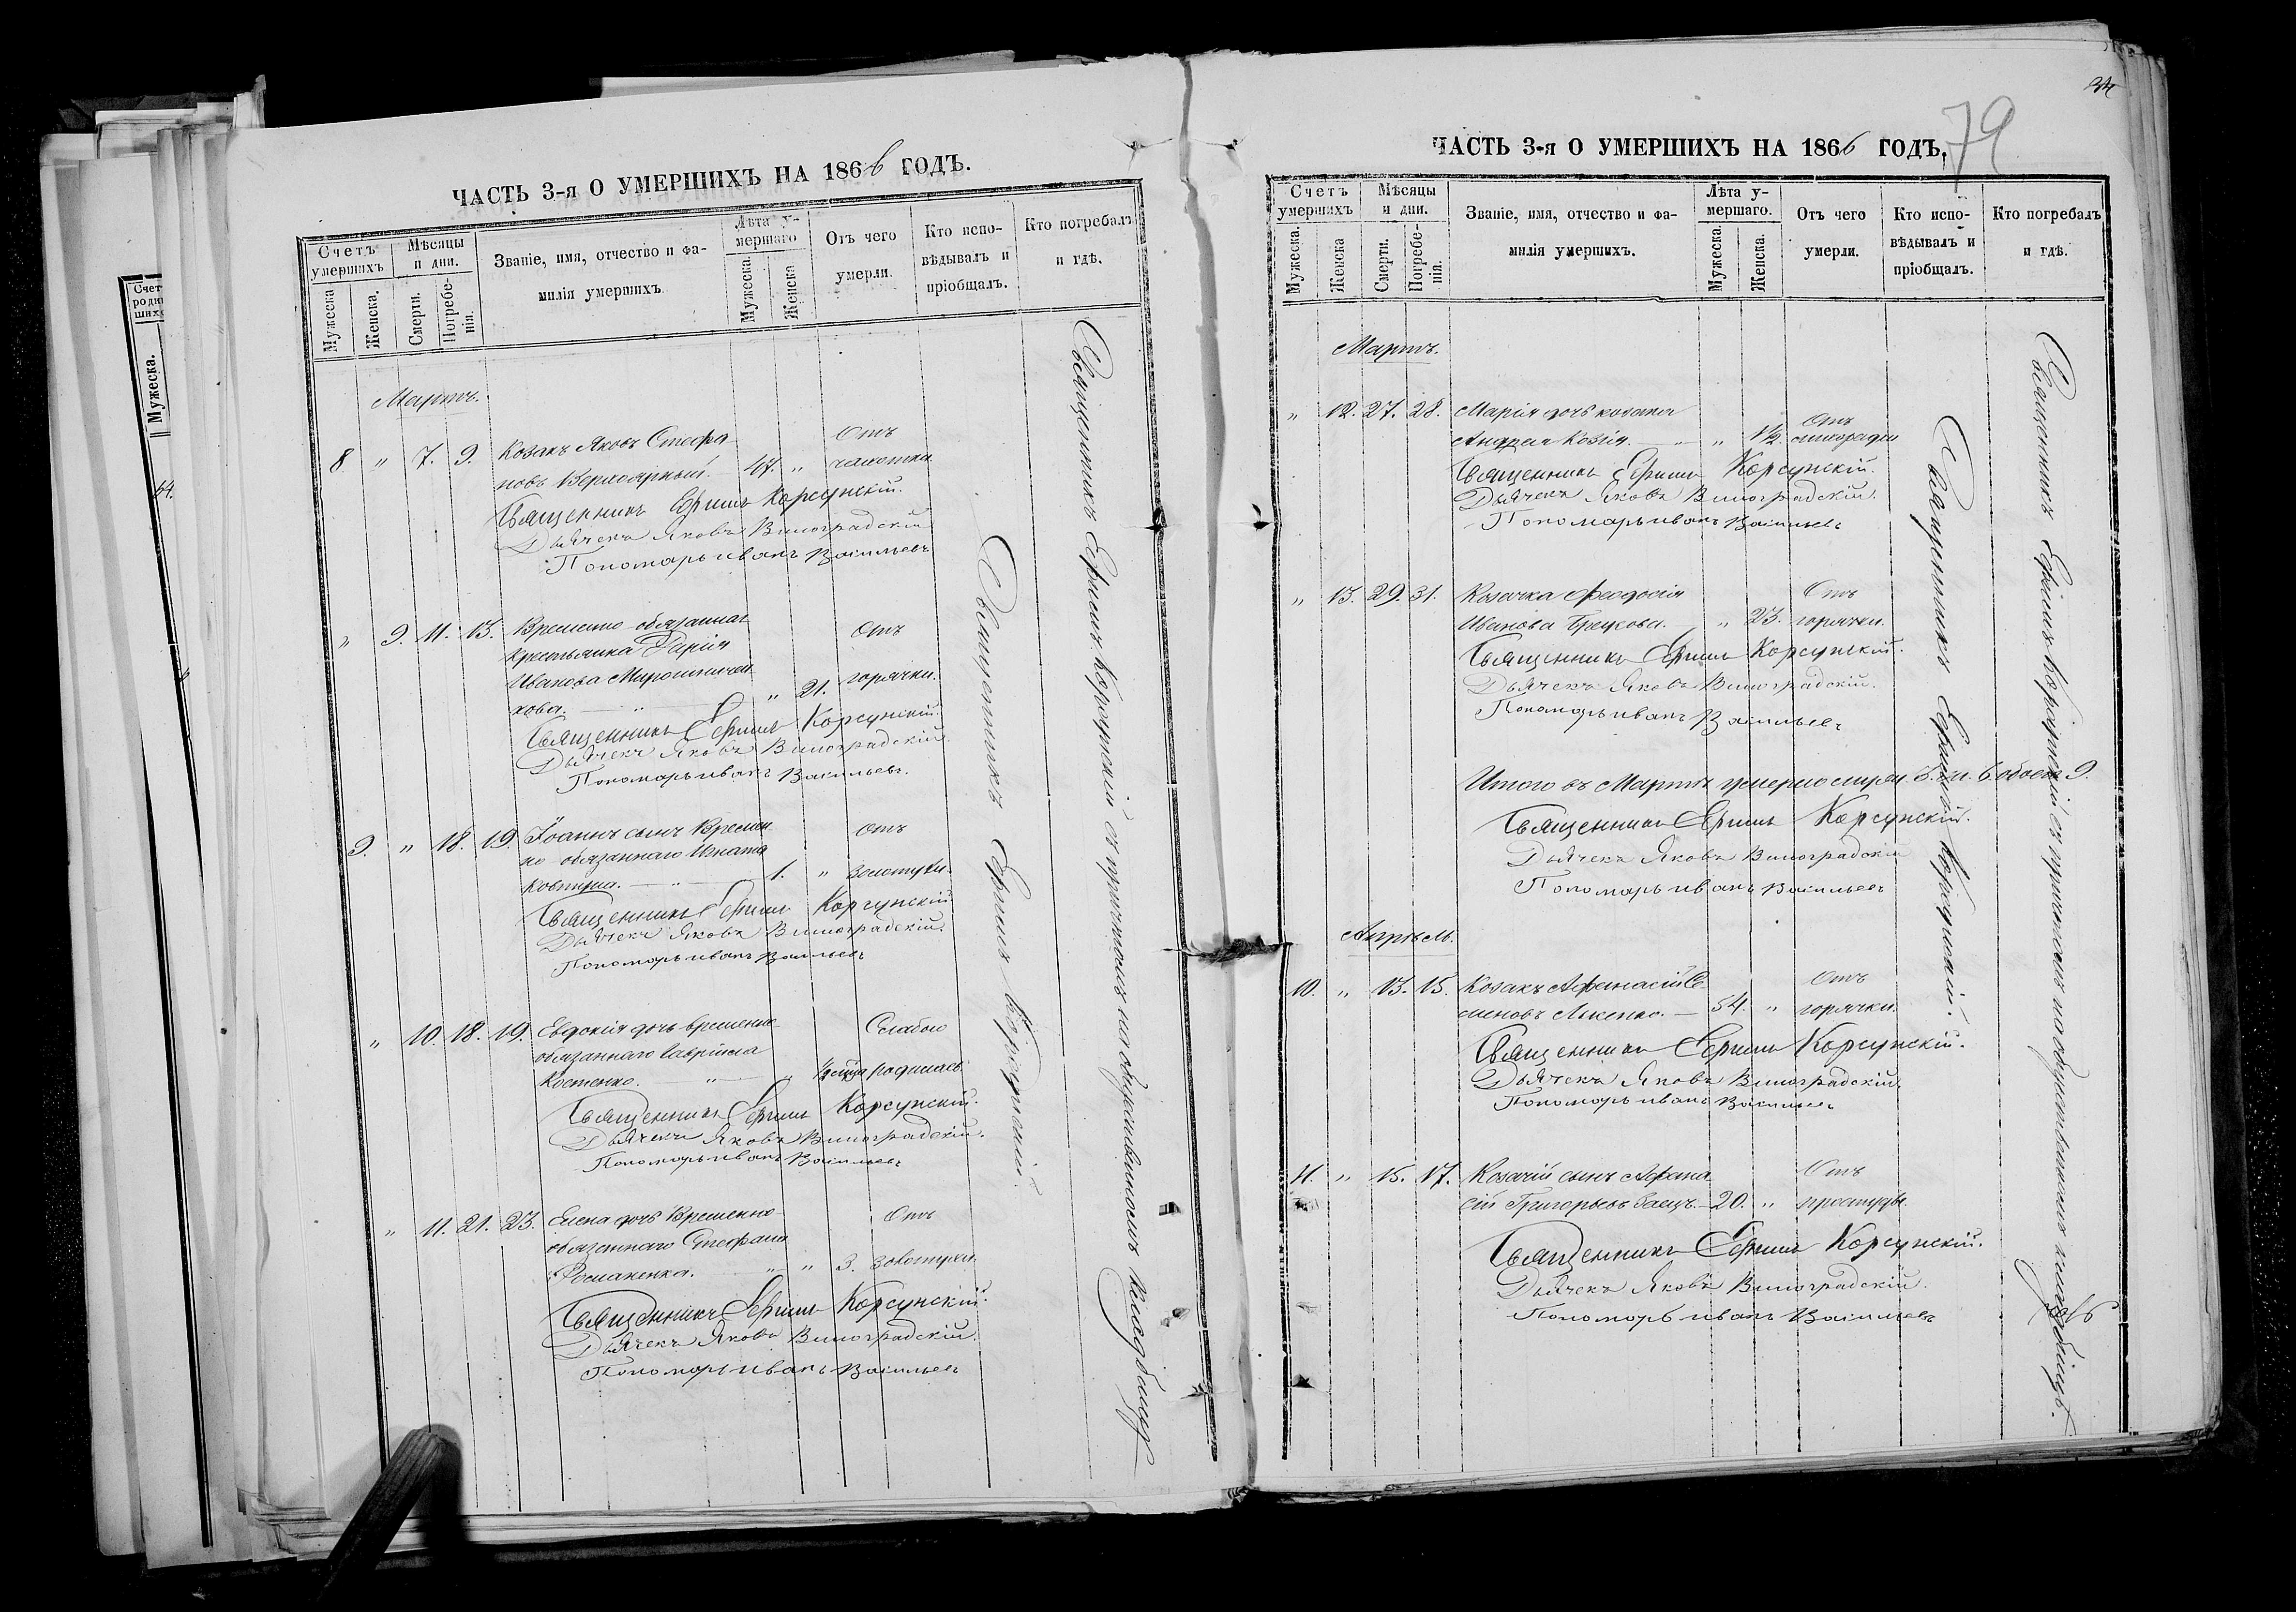 Счет
роди
ших
Мужеска.
64.
ЧАСТЬ 3-я О УМЕРШИХЪ НА 1866 ГОДЪ.
Счетъ умершихъ
Мужеска
Женска.
Мѣсяцы и дни.
Смерти.
Погребенія.
Званіе, имя, отчество и фамилія умершихъ
Лѣта умершаго
Мужеска.
Женска
Отъ чего умерли.
Кто исповѣдывалъ и пріобщалъ.
Кто погребалъ и гдѣ.
Мартъ.
8 " 7. 9. Козакъ Яковъ Стефа- Отъ
новъ 47. " чахотки
Священникъ Ефимъ Корсунскій.
Дьячекъ Яковъ Виноградскій
Пономарь иванъ Васильевъ
" 9. 11. 13. Временно-обязанная Отъ
крестьянка Дарія
Иванова Мирошничен-
кова. " " 21. горячки.
Священникъ Ефимъ Корсунскій.
Дьячекъ Яковъ Виноградскій.
Пономарь иванъ Васильевъ.
9. " 18. 19. Іоаннъ сынъ Времен- Отъ
но-обязаннаго Игната
Ковтуна. " 1. " золотухи.
Священникъ Ефимъ Корсунскій
Дьячекъ Яковъ Виноградскій.
Пономарь иванъ Васильевъ
" 10. 18. 19. Евдокія дочь временно- Слабою
обязаннаго Гавріила
Костенко. " " родилась.
Священникъ Ефимъ Корсунскій.
Дьячекъ Яковъ Виноградскій.
Пономарь иванъ Васильевъ
" 11. 21. 23. Елена дочь Временно- Отъ
обязаннаго Стефана
" " 3. золотухи.
Священникъ Ефимъ Корсунскій.
Дьячекъ Яковъ Виноградскій.
Пономарь иванъ Васильевъ
Священникъ Ефимъ Корсунскій.
Священникъ Ефимъ Корсунскій съ причтомъ на общественномъ кладбищѣ
79
ЧАСТЬ 3-я О УМЕРШИХЪ НА 1866 ГОДЪ.
Счетъ умершихъ
Мужеска.
Женска
Мѣсяцы и дни.
Смерти.
Погребенія.
Званіе, имя, отчество и фамилія умершихъ.
Лѣта умершаго.
Мужеска.
Женска.
Отъ чего умерли.
Кто исповѣдывалъ и пріобщалъ.
Кто погребалъ и гдѣ.
Мартъ.
" 12. 27. 28. Марія дочь козака Отъ
Андрея Козія. " " 1½ лихорадки
Священникъ Ефимъ Корсунскій.
Дьячекъ Яковъ Виноградскій.
Пономарь иванъ Васильевъ
" 13. 29. 31. Козачка Феодосія Отъ
Иванова " 23. горячки.
Священникъ Ефимъ Корсунскій.
Дьячекъ Яковъ Виноградскій.
Пономарь иванъ Васильевъ
Итого въ Мартѣ умерло обоего 9.
Священникъ Ефимъ Корсунскій.
Дьячекъ Яковъ Виноградскій
Пономарь иванъ Васильевъ
Апрѣль.
10. " 13. 15. Козакъ Афанасій Се- Отъ
меновъ 54. " горячки.
Священникъ Ефимъ Корсунскій.
Дьячекъ Яковъ Виноградскій.
Пономарь иванъ Васильевъ
11. " 15. 17. Козачій сынъ Афана- Отъ
сій Григорьевъ Заецъ. 20. " простуды.
Священникъ Ефимъ Корсунскій.
Дьячекъ Яковъ Виноградскій.
Пономарь иванъ Васильевъ
Священникъ Ефимъ Корсунскій.
Священникъ Ефимъ Корсунскій съ причтомъ на общественномъ кладбищѣ.